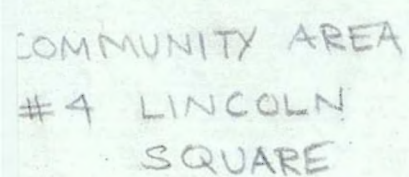 COMMUNITY AREA
#4 LINCOLN
SQUARE